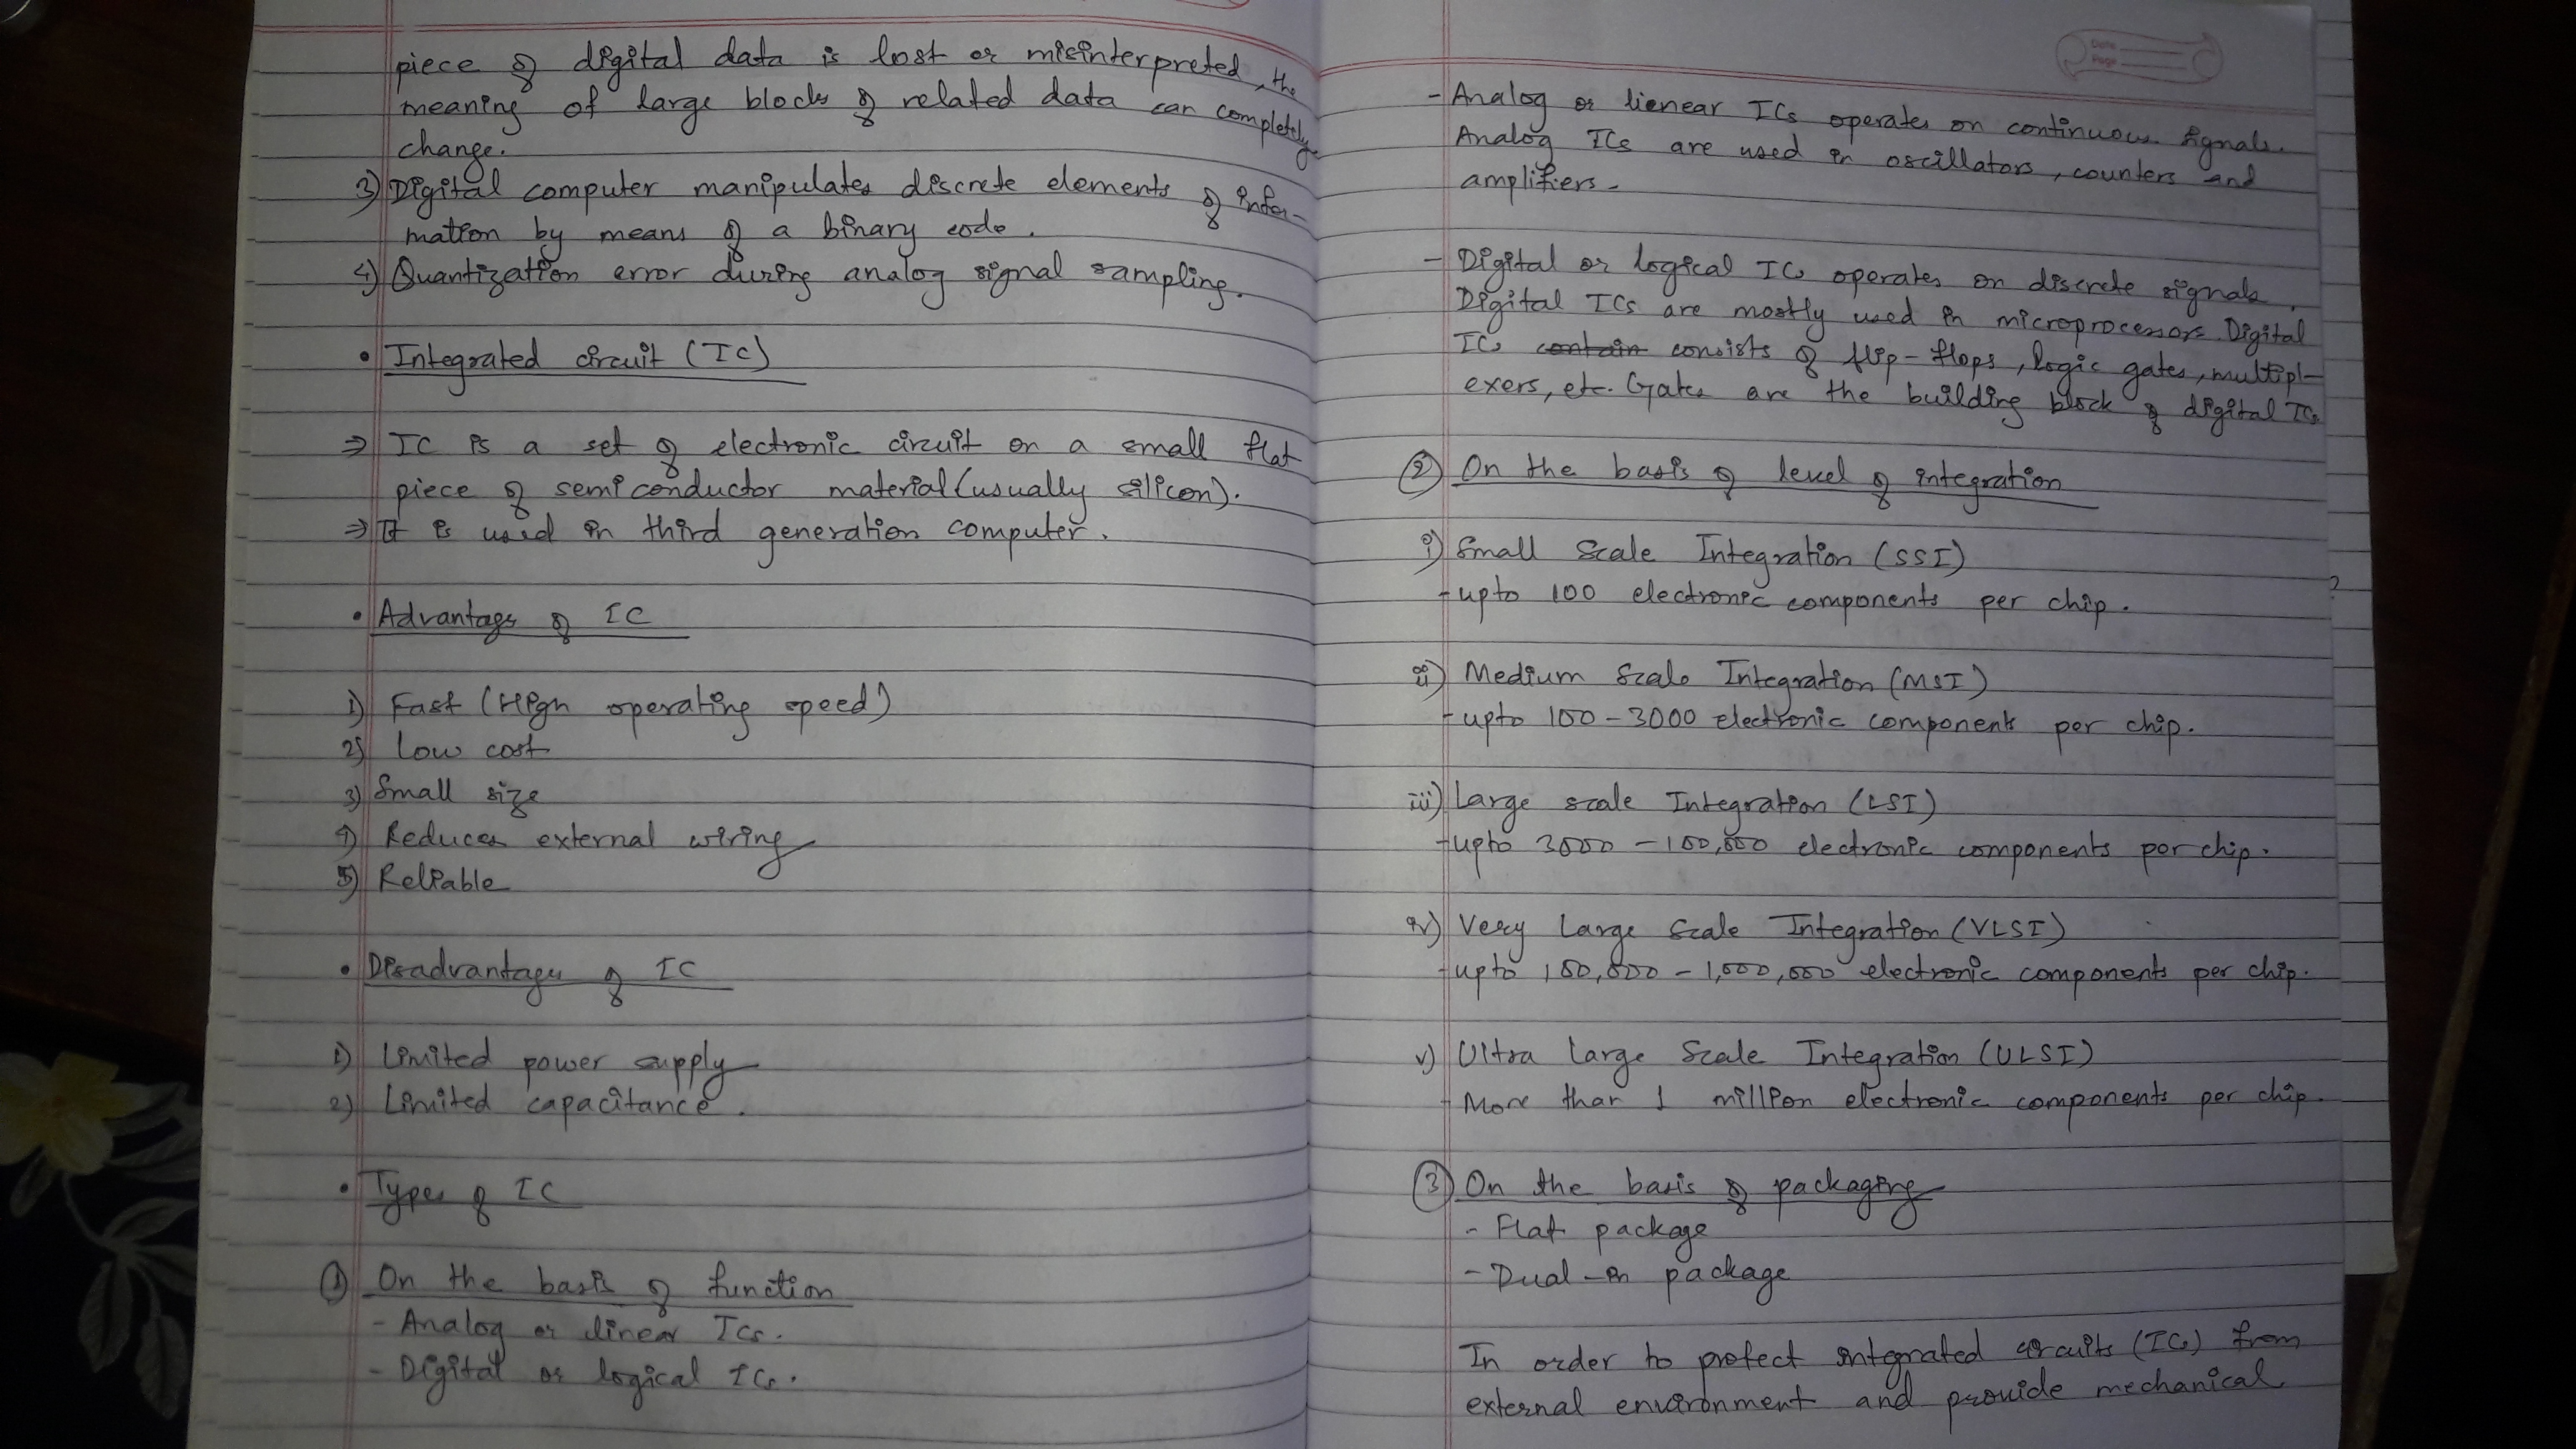 piece of digital data is lost or misinterpreted, the
meaning of large blocks of related data can completely
change.
3) Digital computer manipulates discrete elements of infor-
mation by means of a binary code.
4) Quantization error during analog signal sampling.
• Integrated circuit (IC)
⇒ IC is a set of electronic circuit on a small flat
piece of semiconductor material (usually silicon).
⇒ It is used in third generation computer.
• Advantages of IC
1) Fast (High operating speed)
2) Low cost
3) Small size
4) Reduces external wiring
5) Reliable
• Disadvantages of IC
1) Limited power supply
2) Limited capacitance.
• Types of IC
① On the basis of function
- Analog or linear ICs.
- Digital or logical ICs.
Date
Page
- Analog or lienear ICs operates on continuous signals.
Analog ICs are used in oscillators, counters and
amplifiers.
- Digital or logical ICs operates on discrete signals.
Digital ICs are mostly used in microprocessors. Digital
ICs contain consists of flip-flops, logic gates, multipl-
exers, etc. Gates are the building block of digital ICs
② On the basis of level of integration
i) Small Scale Integration (SSI)
- upto 100 electronic components per chip.
ii) Medium Scale Integration (MSI)
- upto 100 - 3000 electronic components per chip.
iii) Large scale Integration (LSI)
- upto 3000 - 100,000 electronic components per chip.
iv) Very Large Scale Integration (VLSI)
- upto 100,000 - 1,000,000 electronic components per chip.
v) Ultra Large Scale Integration (ULSI)
- More than 1 million electronic components per chip.
③ On the basis of packaging
- Flat package
- Dual-in package
In order to protect integrated circuits (ICs) from
external environment and provide mechanical